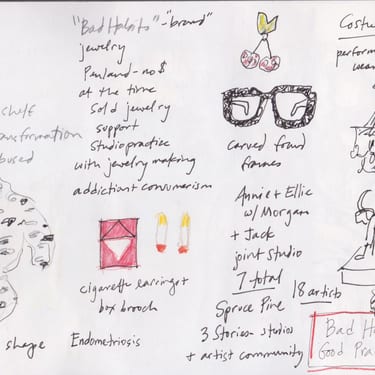 "Bad Habits" - "brand"
jewelry
Penland - no $
at the time
Sold jewelry
support
Studio practice
with jewelry making
addiction + consumerism
cigarette earrings +
box brooch
Endometriosis
shelf
ansformation
used
shape
carved found
frames
Annie + Ellie
w/ Morgan
+ Jack
joint studio
7 total
Spruce Pine 18 artists
3 Stories studios
+ artist community
Costu
perform
wea
Bad Ha
Good Pra